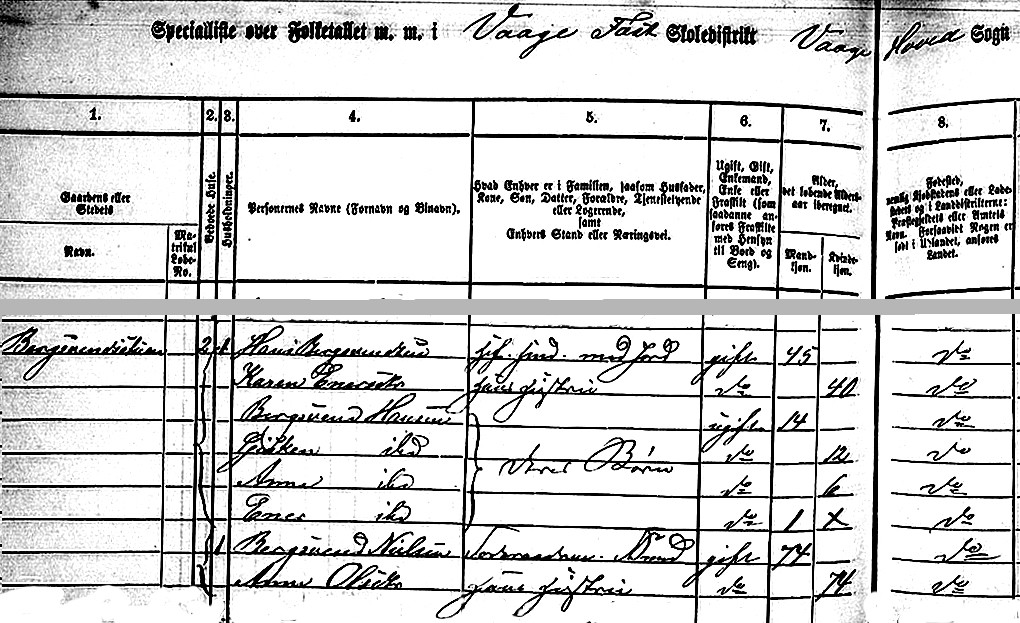 Specialliste over Folketallet m. m. i Vaage Fast Skoledistrikt Vaage Hoved Sogn
1. 2. 3. 4. 5. 6. 7. 8.
Gaardens eller Stedets
Navn.
Ma-
trikul
Løbe-
No.
Beboede Huse.
Husholdninger.
Personernes Navne (Fornavn og Binavn).
Hvad Enhver er i Familien, saasom Husfader,
Kone, Søn, Datter, Forældre, Tjenestetyende
eller Logerende,
samt
Enhvers Stand eller Næringsvei.
Ugift, Gift,
Enkemand,
Enke eller
Fraskilt (som
saadanne an-
føres Fraskilte
med Hensyn
til Bord og
Seng).
Alder,
det løbende Alders-
aar iberegnet.
Mand-
kjøn.
Kvinde-
kjøn.
Fødested,
nemlig Kjøbstadens eller Lade-
stedets og i Landdistrikterne:
Præstegjeldets eller Amtets
Navn. Forsaavidt Nogen er
født i Udlandet, anføres
Landet.
2 1 Hans Bergsvendsen med Jord gift 45 do
Karen Enersdtr hans Hustru do 40 do
Bergsvend Hansen ugift 14 do
ibd deres Børn do 12 do
Anne ibd do 6 do
Ener ibd do 1 x do
1 Bergsvend Nielsen Mand gift 74 do
Anne Olsdtr hans Hustru do 74 do